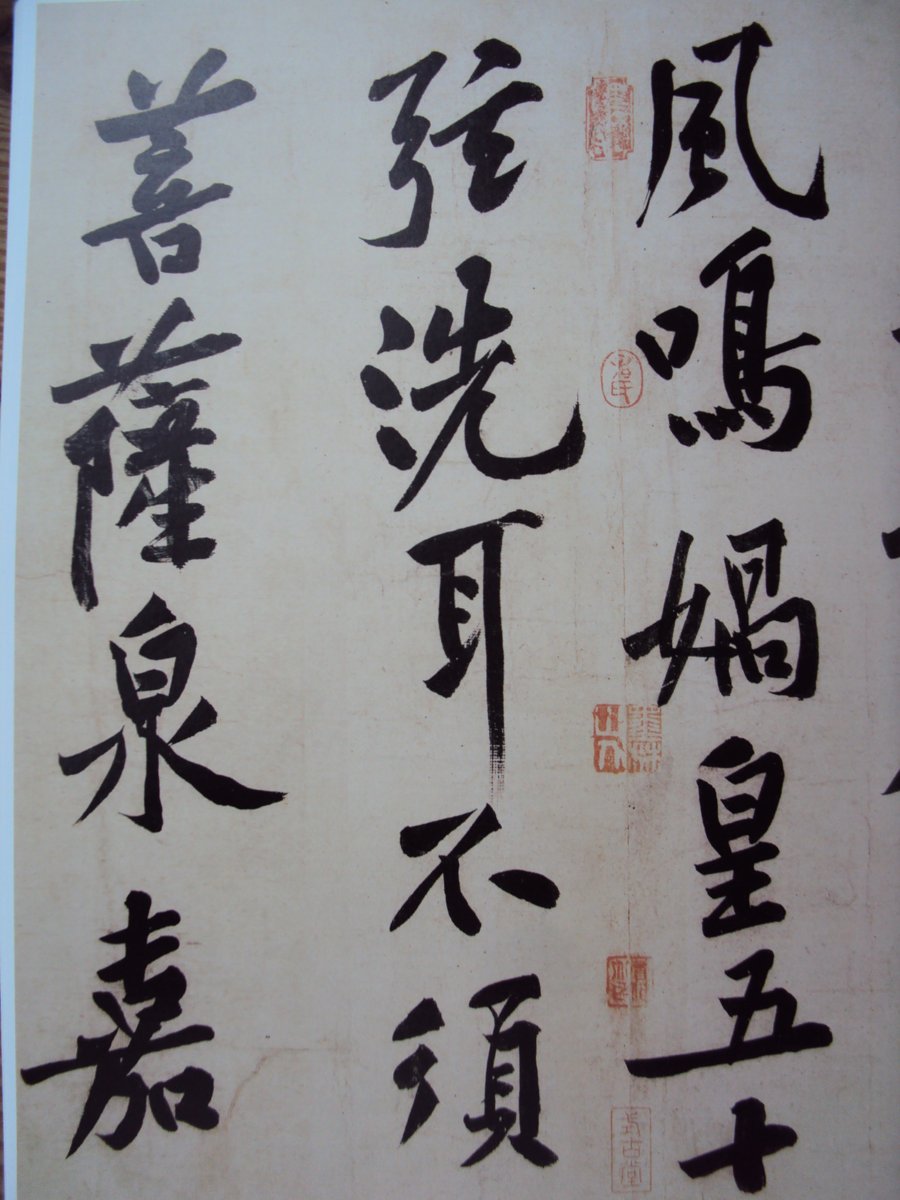 風鳴媧皇五十
弦洗耳不須
菩薩泉嘉